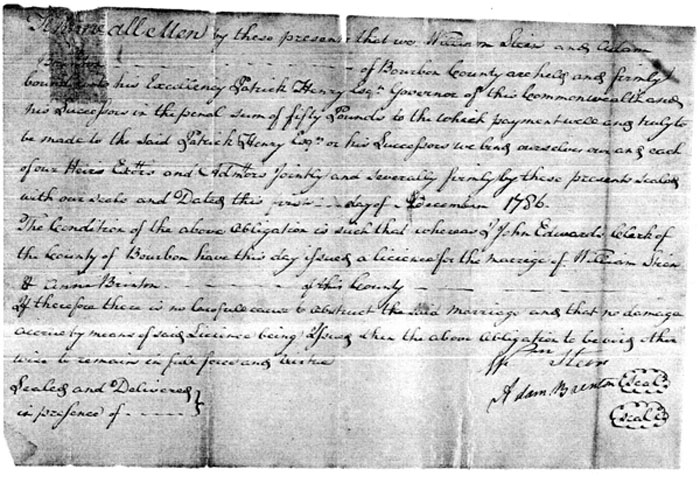 Know all Men by these presents that we William Steen and Adam
Brinton - - - - - of Bourbon County are held and firmly
bound unto his Excellency Patrick Henry Esqr. Governor of this Commonwealth and
his Successors in the penal sum of fifty Pounds to the which payment well and truly to
be made to the said Patrick Henry Esqr. or his Successors we bind ourselves our and each
of our Heirs Exttrs and Admttors Jointly and severally firmly by these presents sealed
with our seals and Dated this first - - - day of December 1786.
The Condition of the above Obligation is such that whereas I John Edwards Clerk of
the County of Bourbon have this day issued a licience for the marrige of William Steen
& Anna Brinton - - - - - of this County - - - -
If therefore there is no lawfull cause to obstruct the said Marriage and that no damage
accrue by means of said Licience being Issued then the above Obligation to be void other
wise to remain in full force and virtue
Wm Steen
Sealed and Delivered
in presence of - - - - -
Adam Brinton Seal
Seal